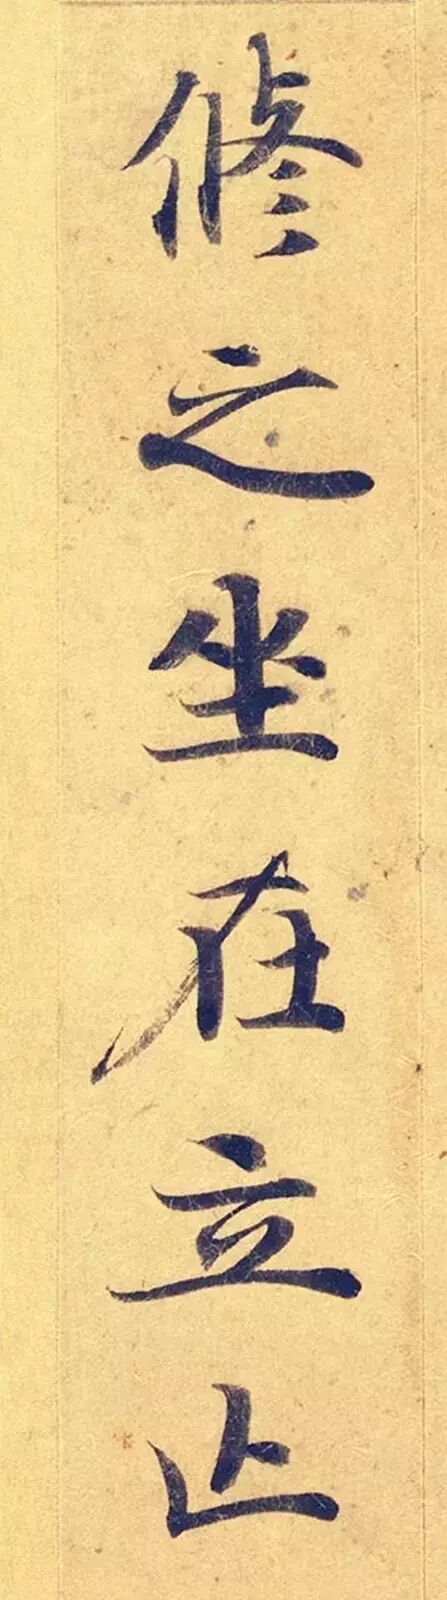 修之坐在立止